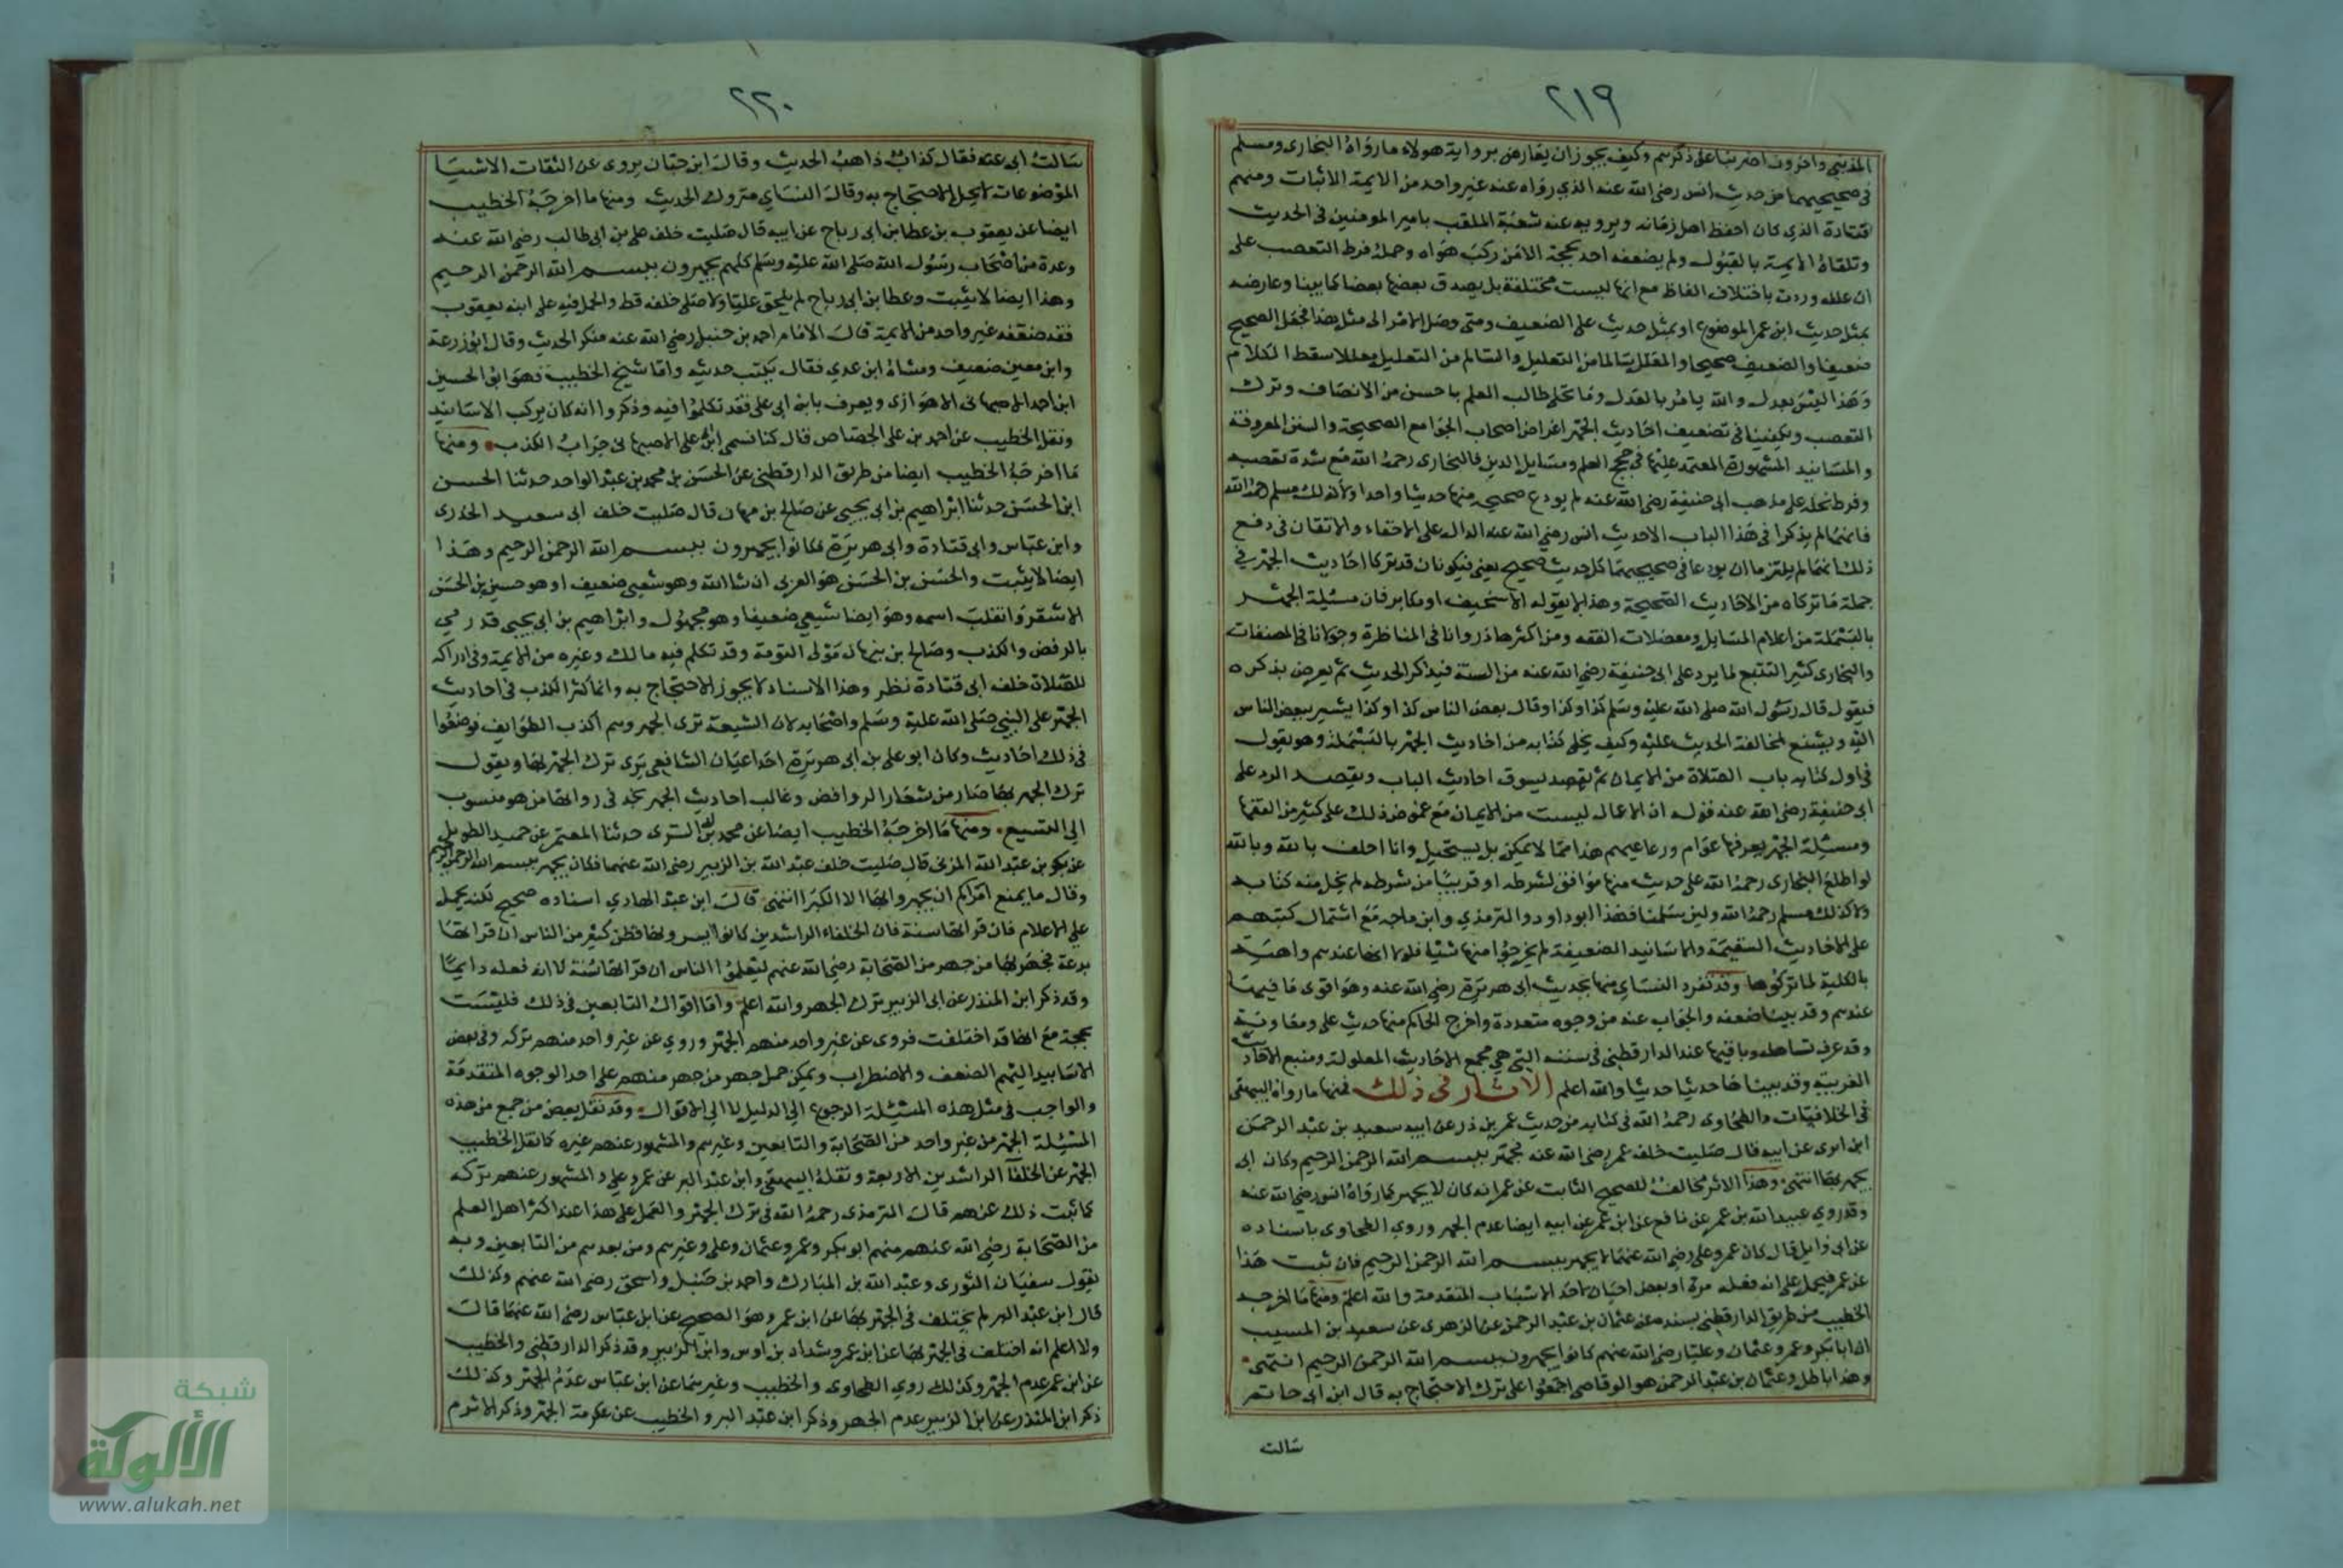 ٢١٩
المديني واخرون اضربنا على ذكرهم وكيف يجوز ان يعارض برواية هولاء ما رواه البخارى ومسلم
فى صحيحيهما من حديث انس رضى الله عنه الذي رواه عنه غير واحد من الايمة الاثبات ومنهم
قتادة الذي كان احفظ اهل زمانه ويرويه عنه شعبة الملقب بامير المومنين فى الحديث
وتلقاه الايمة بالقبول ولم يضعفه احد بحجة الا من ركب هواه وحمله فرط التعصب على
ان علله وردت باختلاف الفاظ مع انها ليست مختلفة بل يصدق بعضها بعضا كما بينا وعارضه
بمثل حديث ابن عمر الموضوع او بمثل حديث على الضعيف ومتى وصل الامر الى مثل هذا فجعل الصحيح
ضعيفا والضعيف صحيحا والمعلل سالما من التعليل والسالم من التعليل معللا سقط الكلام
وهذا ليس بعدل والله يامر بالعدل وما تحلى طالب العلم باحسن من الانصاف وترك
التعصب ويكفينا فى تضعيف احاديث الجهر اعراض اصحاب الجوامع الصحيحة والسنن المعروفة
والمسانيد المشهورة المعتمد عليها فى حجج العلم ومسايل الدين فالبخارى رحمه الله مع شدة تعصبه
وفرط تحمله على مذهب ابى حنيفة رضى الله عنه لم يودع صحيحه منها حديثا واحدا ولا كذلك مسلم رحمه الله
فانهما لم يذكرا فى هذا الباب الا حديث انس رضي الله عنه الدال على الاخفاء والاتقان فى دفع
ذلك انهما لم يلتزما ان يودعا فى صحيحيهما كل حديث صحيح يعنى فيكونان قد تركا احاديث الجهر في
جملة ما تركاه من الاحاديث الصحيحة وهذا لا يقوله الا سخيف او مكابر فان مسئلة الجهر
بالبسملة من اعلام المسايل ومعضلات الفقه ومن اكثرها دورانا فى المناظرة وجولانا فى المصنفات
والبخارى كثير التتبع لما يرد على ابى حنيفة رضي الله عنه من السنة فيذكر الحديث ثم يعرض بذكره
فيقول قال رسول الله صلى الله عليه وسلم كذا وكذا وقال بعض الناس كذا وكذا يشير ببعض الناس
اليه ويشنع لمخالفة الحديث عليه وكيف يخلى كتابه من احاديث الجهر بالبسملة وهو يقول
فى اول كتابه باب الصلاة من الايمان ثم يقصد يسوق احاديث الباب ويقصد الرد على
ابى حنيفة رضى الله عنه قوله ان الاعمال ليست من الايمان مع غموض ذلك على كثير من الفقها
ومسئلة الجهر يعرفها عوام ورعاعهم هذا مما لا يمكن بل يستحيل وانا احلف بالله وبالله
لو اطلع البخارى رحمه الله على حديث منها موافق لشرطه او قريبا من شرطه لم يخل منه كتابه
ولا كذلك مسلم رحمه الله ولين سلمنا فهذا ابو داود والترمذي وابن ماجه مع اشتمال كتبهم
على الاحاديث السقيمة والاسانيد الضعيفة لم يخرجوا منها شئيا فلولا انها عندهم واهية
بالكلية لما تركوها وقد تفرد النساي منها بحديث ابى هريرة رضي الله عنه وهو اقوى ما فيها
عندهم وقد بينا ضعفه والجواب عنه من وجوه متعددة واخرج الحاكم منها حديث على ومعاوية
وقد عرف تساهله وباقيها عند الدارقطنى فى سننه التى هي مجمع الاحاديث المعلولة ومنبع الاحاديث
الغريبة وقد بيناها حديثا حديثا والله اعلم الاثار فى ذلك فمنها ما رواه البيهقى
فى الخلافيات والطحاوى رحمه الله فى كتابه من حديث عمر بن ذر عن ابيه سعيد بن عبد الرحمن
ابن ابزى عن ابيه قال صليت خلف عمر رضى الله عنه فجهر ببسم الله الرحمن الرحيم وكان ابى
يجهر بها انتهى وهذا الاثر مخالف للصحيح الثابت عن عمر انه كان لا يجهر كما رواه انس رضي الله عنه
وقد روي عبيد الله بن عمر عن نافع عن ابن عمر عن ابيه ايضا عدم الجهر وروي الطحاوى باسناده
عن ابى وايل قال كان عمر وعلى رضى الله عنهما لا يجهر ببسم الله الرحمن الرحيم فان ثبت هذا
عن عمر فيحمل على انه فعله مرة او بعض احيان لاحد الاسباب المتقدمة والله اعلم ومنها ما اخرجه
الخطيب من طريق الدارقطنى بسنده عن عثمان بن عبد الرحمن عن الزهرى عن سعيد بن المسيب
ان ابا بكر وعمر وعثمان وعليا رضى الله عنهم كانوا يجهرون ببسم الله الرحمن الرحيم انتهى
وهذا باطل وعثمان بن عبد الرحمن هو الوقاصى اجمعوا على ترك الاحتجاج به قال ابن ابى حاتم
سالت
٢٢٠
سالت ابى عنه فقال كذاب ذاهب الحديث وقال ابن حبان يروى عن الثقات الاشيا
الموضوعات لا يحل الاحتجاج به وقال النساي متروك الحديث ومنها ما اخرجه الخطيب
ايضا عن يعقوب بن عطا بن ابى رباح عن ابيه قال صليت خلف على بن ابى طالب رضي الله عنه
وعدة من اصحاب رسول الله صلى الله عليه وسلم كلهم يجهرون ببسم الله الرحمن الرحيم
وهذا ايضا لا يثبت وعطا بن ابى رباح لم يلحق عليا ولا صلى خلفه قط والحمل فيه على ابنه يعقوب
فقد ضعفه غير واحد من الايمة قال الامام احمد بن حنبل رضي الله عنه منكر الحديث وقال ابو زرعة
وابن معين ضعيف ومشاه ابن عدي فقال يكتب حديثه واما شيخ الخطيب فهو ابو الحسين
ابن احمد الاصبهانى الاهوازى ويعرف بابن ابى على فقد تكلموا فيه وذكروا انه كان يركب الاسانيد
ونقل الخطيب عن احمد بن على الجصاص قال كنا نسمى ابن ابى على الاصبهانى جراب الكذب ومنها
ما اخرجه الخطيب ايضا من طريق الدارقطنى عن الحسن بن محمد بن عبد الواحد حدثنا الحسن
ابن الحسن حدثنا ابراهيم بن ابى يحيى عن صالح بن نبهان قال صليت خلف ابى سعيد الخدرى
وابن عباس وابى قتادة وابى هريرة فكانوا يجهرون ببسم الله الرحمن الرحيم وهذا
ايضا لا يثبت والحسن بن الحسن هو العربى ان شا الله وهو شيعى ضعيف او هو حسين بن الحسن
الاشقر وانقلب اسمه وهو ايضا شيعي ضعيفا وهو مجهول وابراهيم بن ابى يحيى قد رمي
بالرفض والكذب وصالح بن نبهان مولى التومة وقد تكلم فيه مالك وغيره من الايمة وفى ادراكه
للصلاة خلف ابى قتادة نظر وهذا الاسناد لا يجوز الاحتجاج به وانما كثر الكذب فى احاديث
الجهر على النبي صلى الله عليه وسلم واصحابه لان الشيعة ترى الجهر وهم اكذب الطوايف فوضعوا
فى ذلك احاديث وكان ابو على بن ابى هريرة احد اعيان الشافعى يرى ترك الجهر بها ويقول
ترك الجهر بها صار من شعار الروافض وغالب احاديث الجهر تجد فى رواتها من هو منسوب
الى التشيع ومنها ما اخرجه الخطيب ايضا عن محمد بن السرى حدثنا المعتمر عن حميد الطويل
عن بكر بن عبد الله المزنى قال صليت خلف عبد الله بن الزبير رضى الله عنهما فكان يجهر ببسم الله الرحمن الرحيم
وقال ما يمنع امراكم ان يجهروا بها الا الكبر انتهى قال ابن عبد الهادي اسناده صحيح لكنه يحمل
على الاعلام فان قراتها سنة فان الخلفاء الراشدين كانوا يسرونها فظن كثير من الناس ان قراتها
بدعة فجهر بها من جهر من الصحابة رضي الله عنهم ليعلموا الناس ان قراتها سنة لا انه فعله دايما
وقد ذكر ابن المنذر عن ابى الزبير ترك الجهر والله اعلم واما اقوال التابعين فى ذلك فليست
بحجة مع انها قد اختلفت فروى عن غير واحد منهم الجهر وروي عن غير واحد منهم تركه وفى بعض
الاسانيد اليهم الضعف والاضطراب ويمكن حمل جهر من جهر منهم على احد الوجوه المتقدمة
والواجب فى مثل هذه المسئلة الرجوع الى الدليل لا الى الاقوال وقد نقل بعض من جمع من هذه
المسئلة الجهر من غير واحد من الصحابة والتابعين وغيرهم والمشهور عنهم غيره كما نقل الخطيب
الجهر عن الخلفا الراشدين الاربعة ونقله البيهقى وابن عبد البر عن عمر وعلي والمشهور عنهم تركه
كما ثبت ذلك عنهم قال الترمذى رحمه الله فى ترك الجهر والعمل على هذا عند اكثر اهل العلم
من الصحابة رضي الله عنهم منهم ابو بكر وعمر وعثمان وعلى وغيرهم ومن بعدهم من التابعين وبه
يقول سفيان الثورى وعبد الله بن المبارك واحمد بن حنبل واسحق رضى الله عنهم وكذلك
قال ابن عبد البر لم يختلف فى الجهر بها عن ابن عمر وهو الصحيح عن ابن عباس رضى الله عنهما قال
ولا اعلم انه اختلف فى الجهر بها عن ابن عمر وشداد بن اوس وابن الزبير وقد ذكر الدارقطنى والخطيب
عن ابن عمر عدم الجهر وكذلك روي الطحاوى والخطيب وغيرهما عن ابن عباس عدم الجهر وكذلك
ذكر ابن المنذر عن ابن الزبير عدم الجهر وذكر ابن عبد البر والخطيب عن عكرمة الجهر وذكر الاثرم
شبكة
الألوكة
www.alukah.net